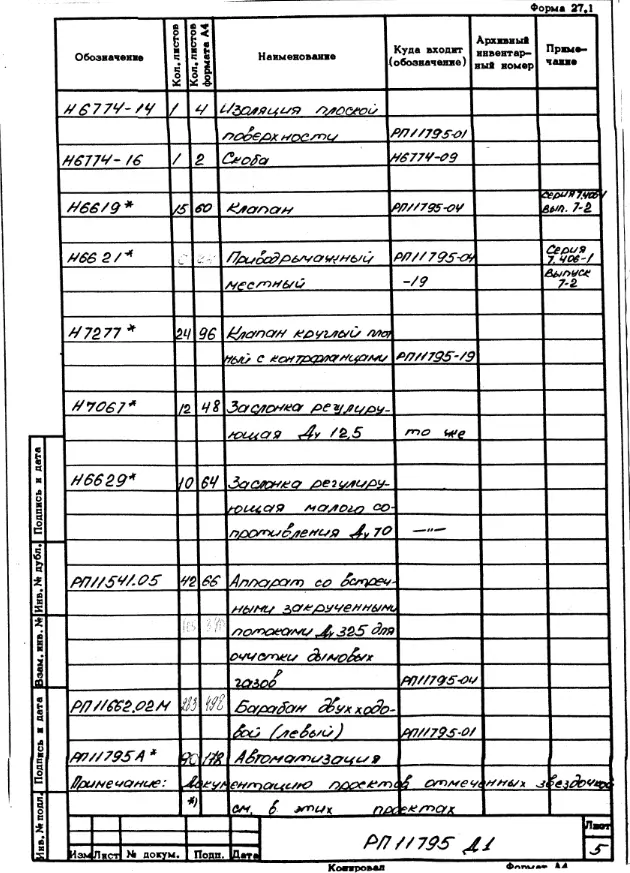 Форма 27.1
Обозначение Кол. листов Кол. листов формата А4 Наименование Куда входит (обозначение) Архивный инвентарный номер Примечание
Н6774-14 1 4 Изоляция плоской
поверхности РП11795-01
Н6774-16 1 2 Скоба Н6774-09
Серия 7.406-1
Н6619* 15 60 Клапан РП11795-04 Вып. 7-2
Н6621* Привод рычажный РП11795-04 Серия 7.406-1
местный -19 Выпуск 7-2
Н7277* 24 96 Клапан круглый плот
ный с контрфланцами РП11795-19
Н7067* 12 48 Заслонка регулиру-
ющая Ду 12,5 то же
Н6629* 10 64 Заслонка регулиру-
ющая малого со-
противления Ду 70 —"—
РП11541.05 42 66 Аппарат со встреч-
ными закрученными
потоками Ду 325 для
очистки дымовых
газов РП11795-04
РП11662.02М Барабан двухходо-
вой (левый) РП11795-01
РП11795А* 90 178 Автоматизация
Примечание: Документацию проектов отмеченных звездочкой
*) см. в этих проектах
РП11795 Д1
Лист
5
Изм Лист № докум. Подп. Дата
Копировал Формат А4
Инв. № подл. Подпись и дата Взам. инв. № Инв. № дубл. Подпись и дата